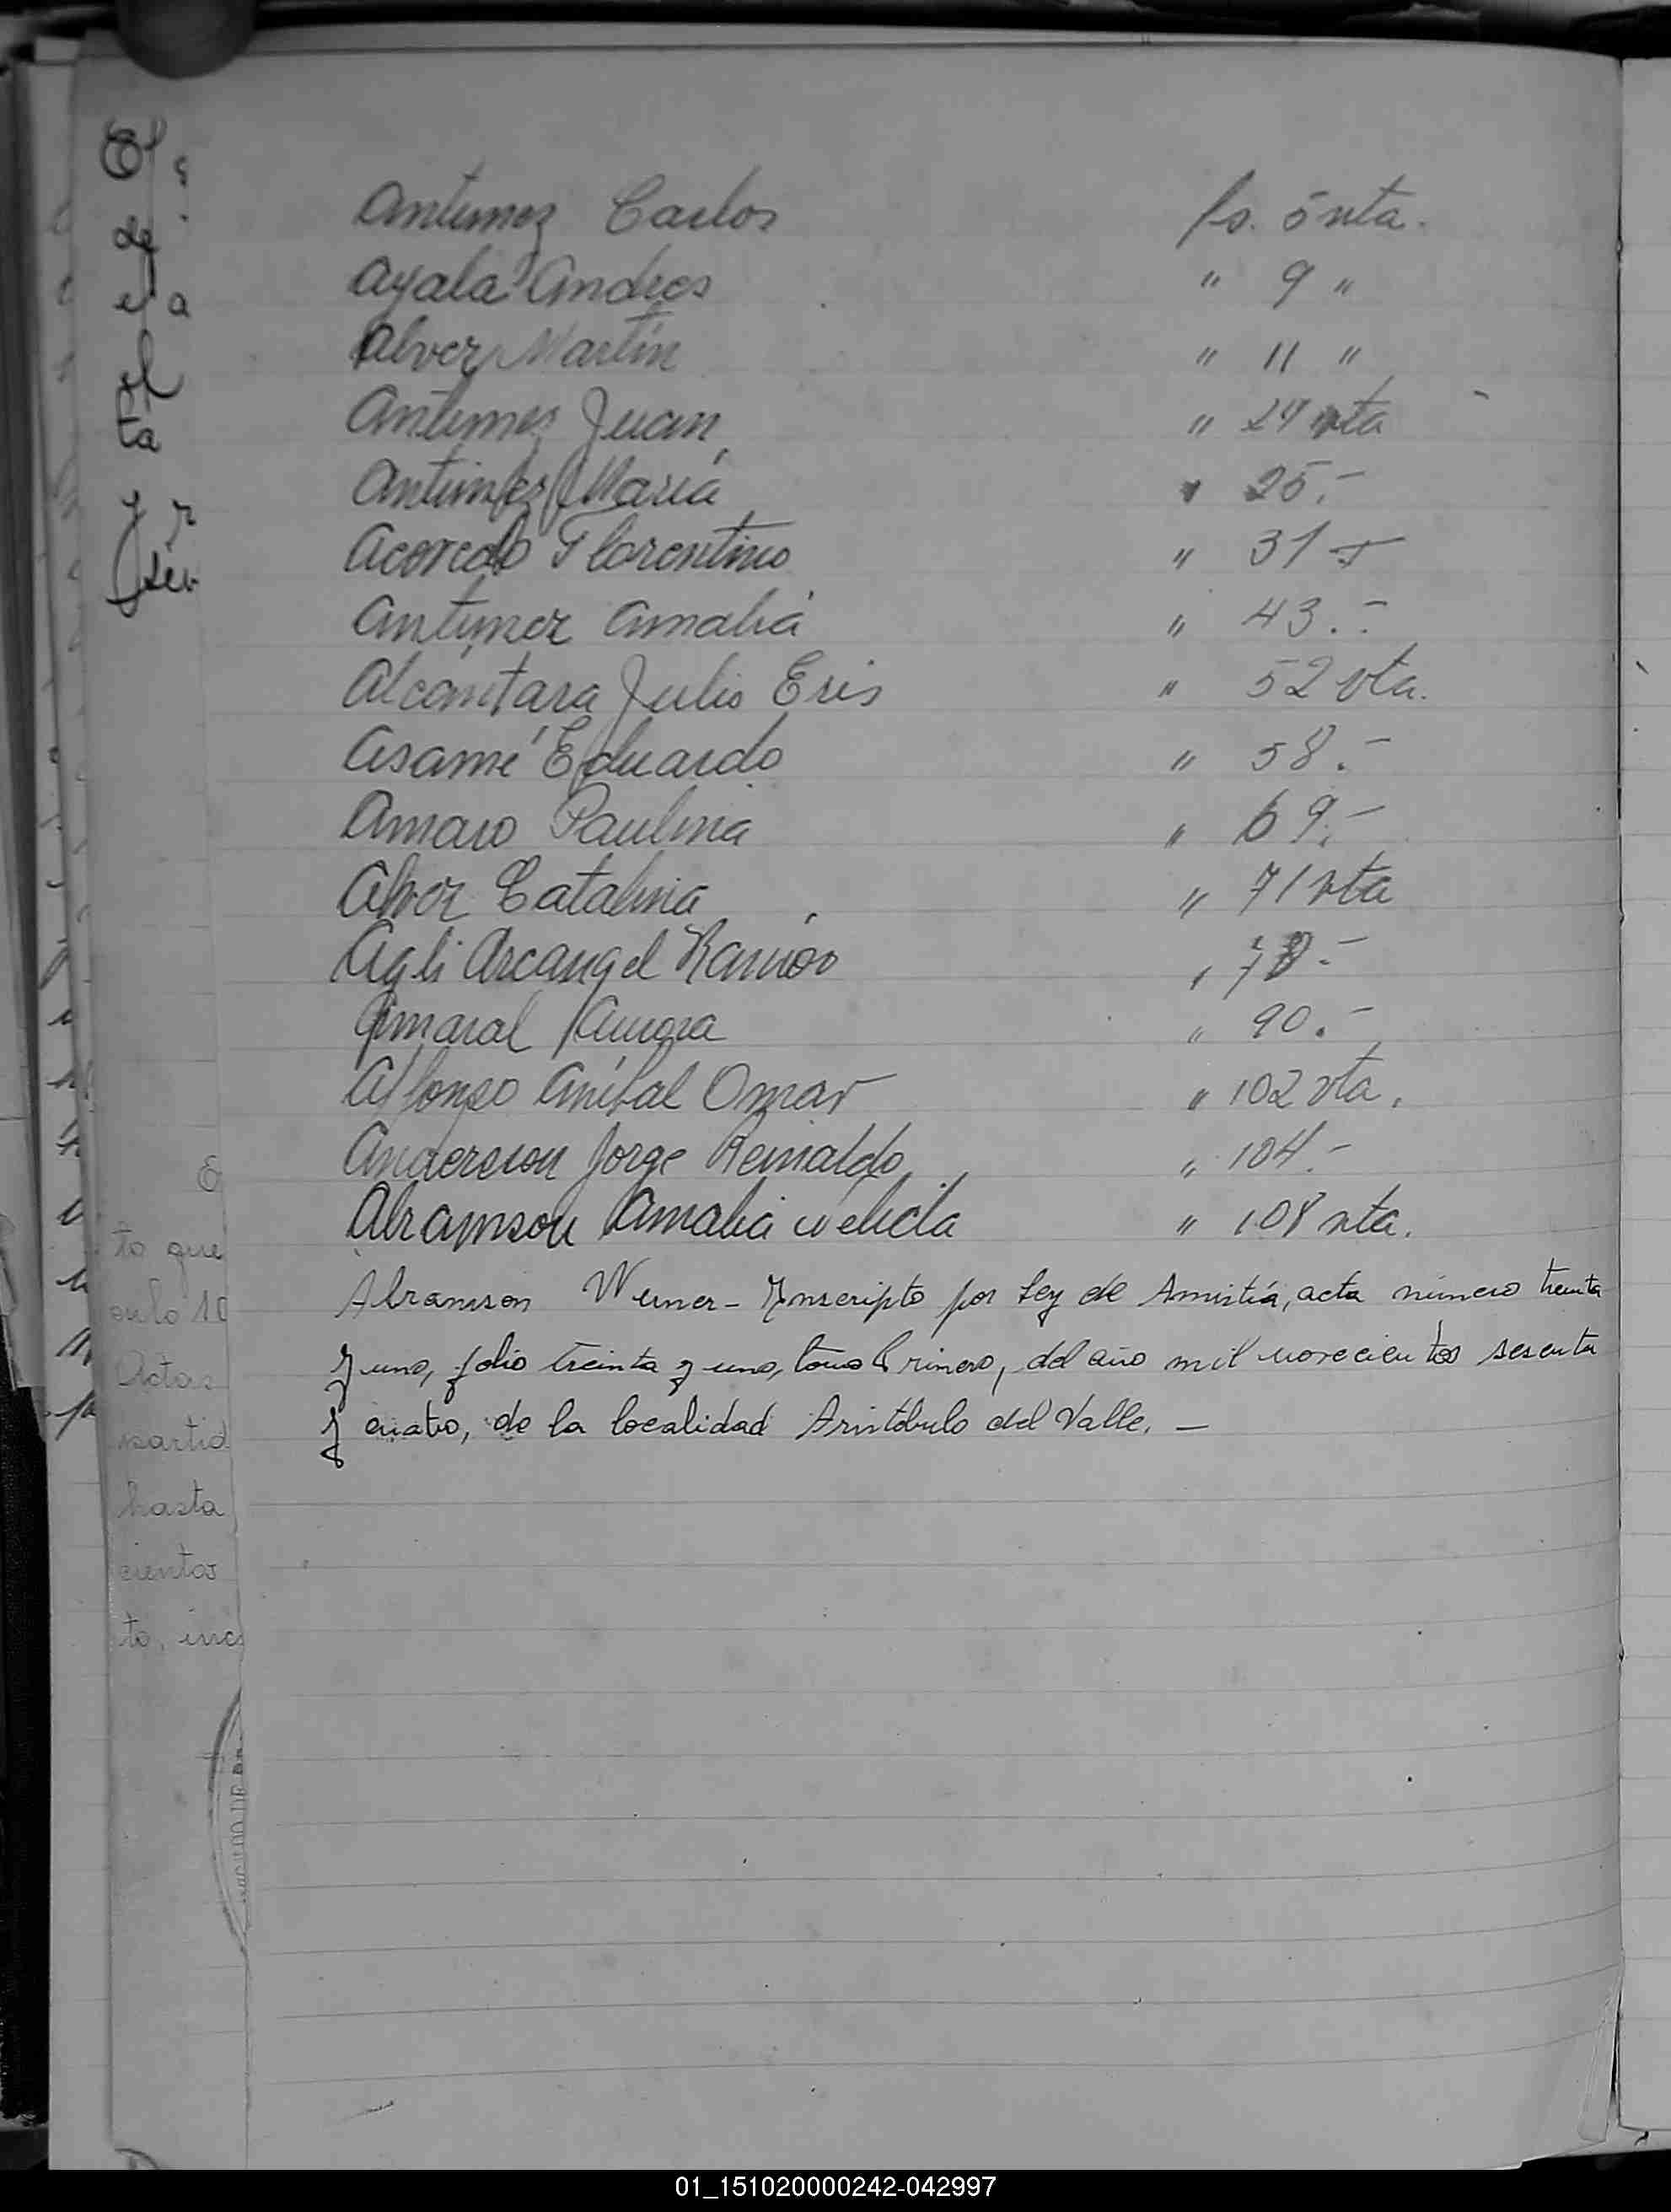 El
de
el a
el
ta
y
Antunez Carlos fs. 5 vta.
Ayala Andres " 9 "
Alvez Martín " 11 "
Antunez Juan " 24 vta
Antunez María " 25.-
Acevedo Florentino " 31
Antunez Amalia " 43.-
Alcántara Julio Eris " 52 vta.
Asamé Eduardo " 58.-
Amaro Paulina " 69.-
Alvez Catalina " 71 vta
Agli Arcangel Ramón "
Amaral Aurora " 90.-
Alfonso Aníbal Omar " 102 vta.
Anderson Jorge Reinaldo " 104.-
Abramson Amalia " 108 vta.
Abramson Werner - Inscripto por Ley de Amnistía, acta número treinta
y uno, folio treinta y uno, tomo Primero, del año mil novecientos sesenta
y cuatro, de la localidad Aristóbulo del Valle. -
to que
culo 10
Actas
partid
hasta
cientos
to, inc
01_151020000242-042997